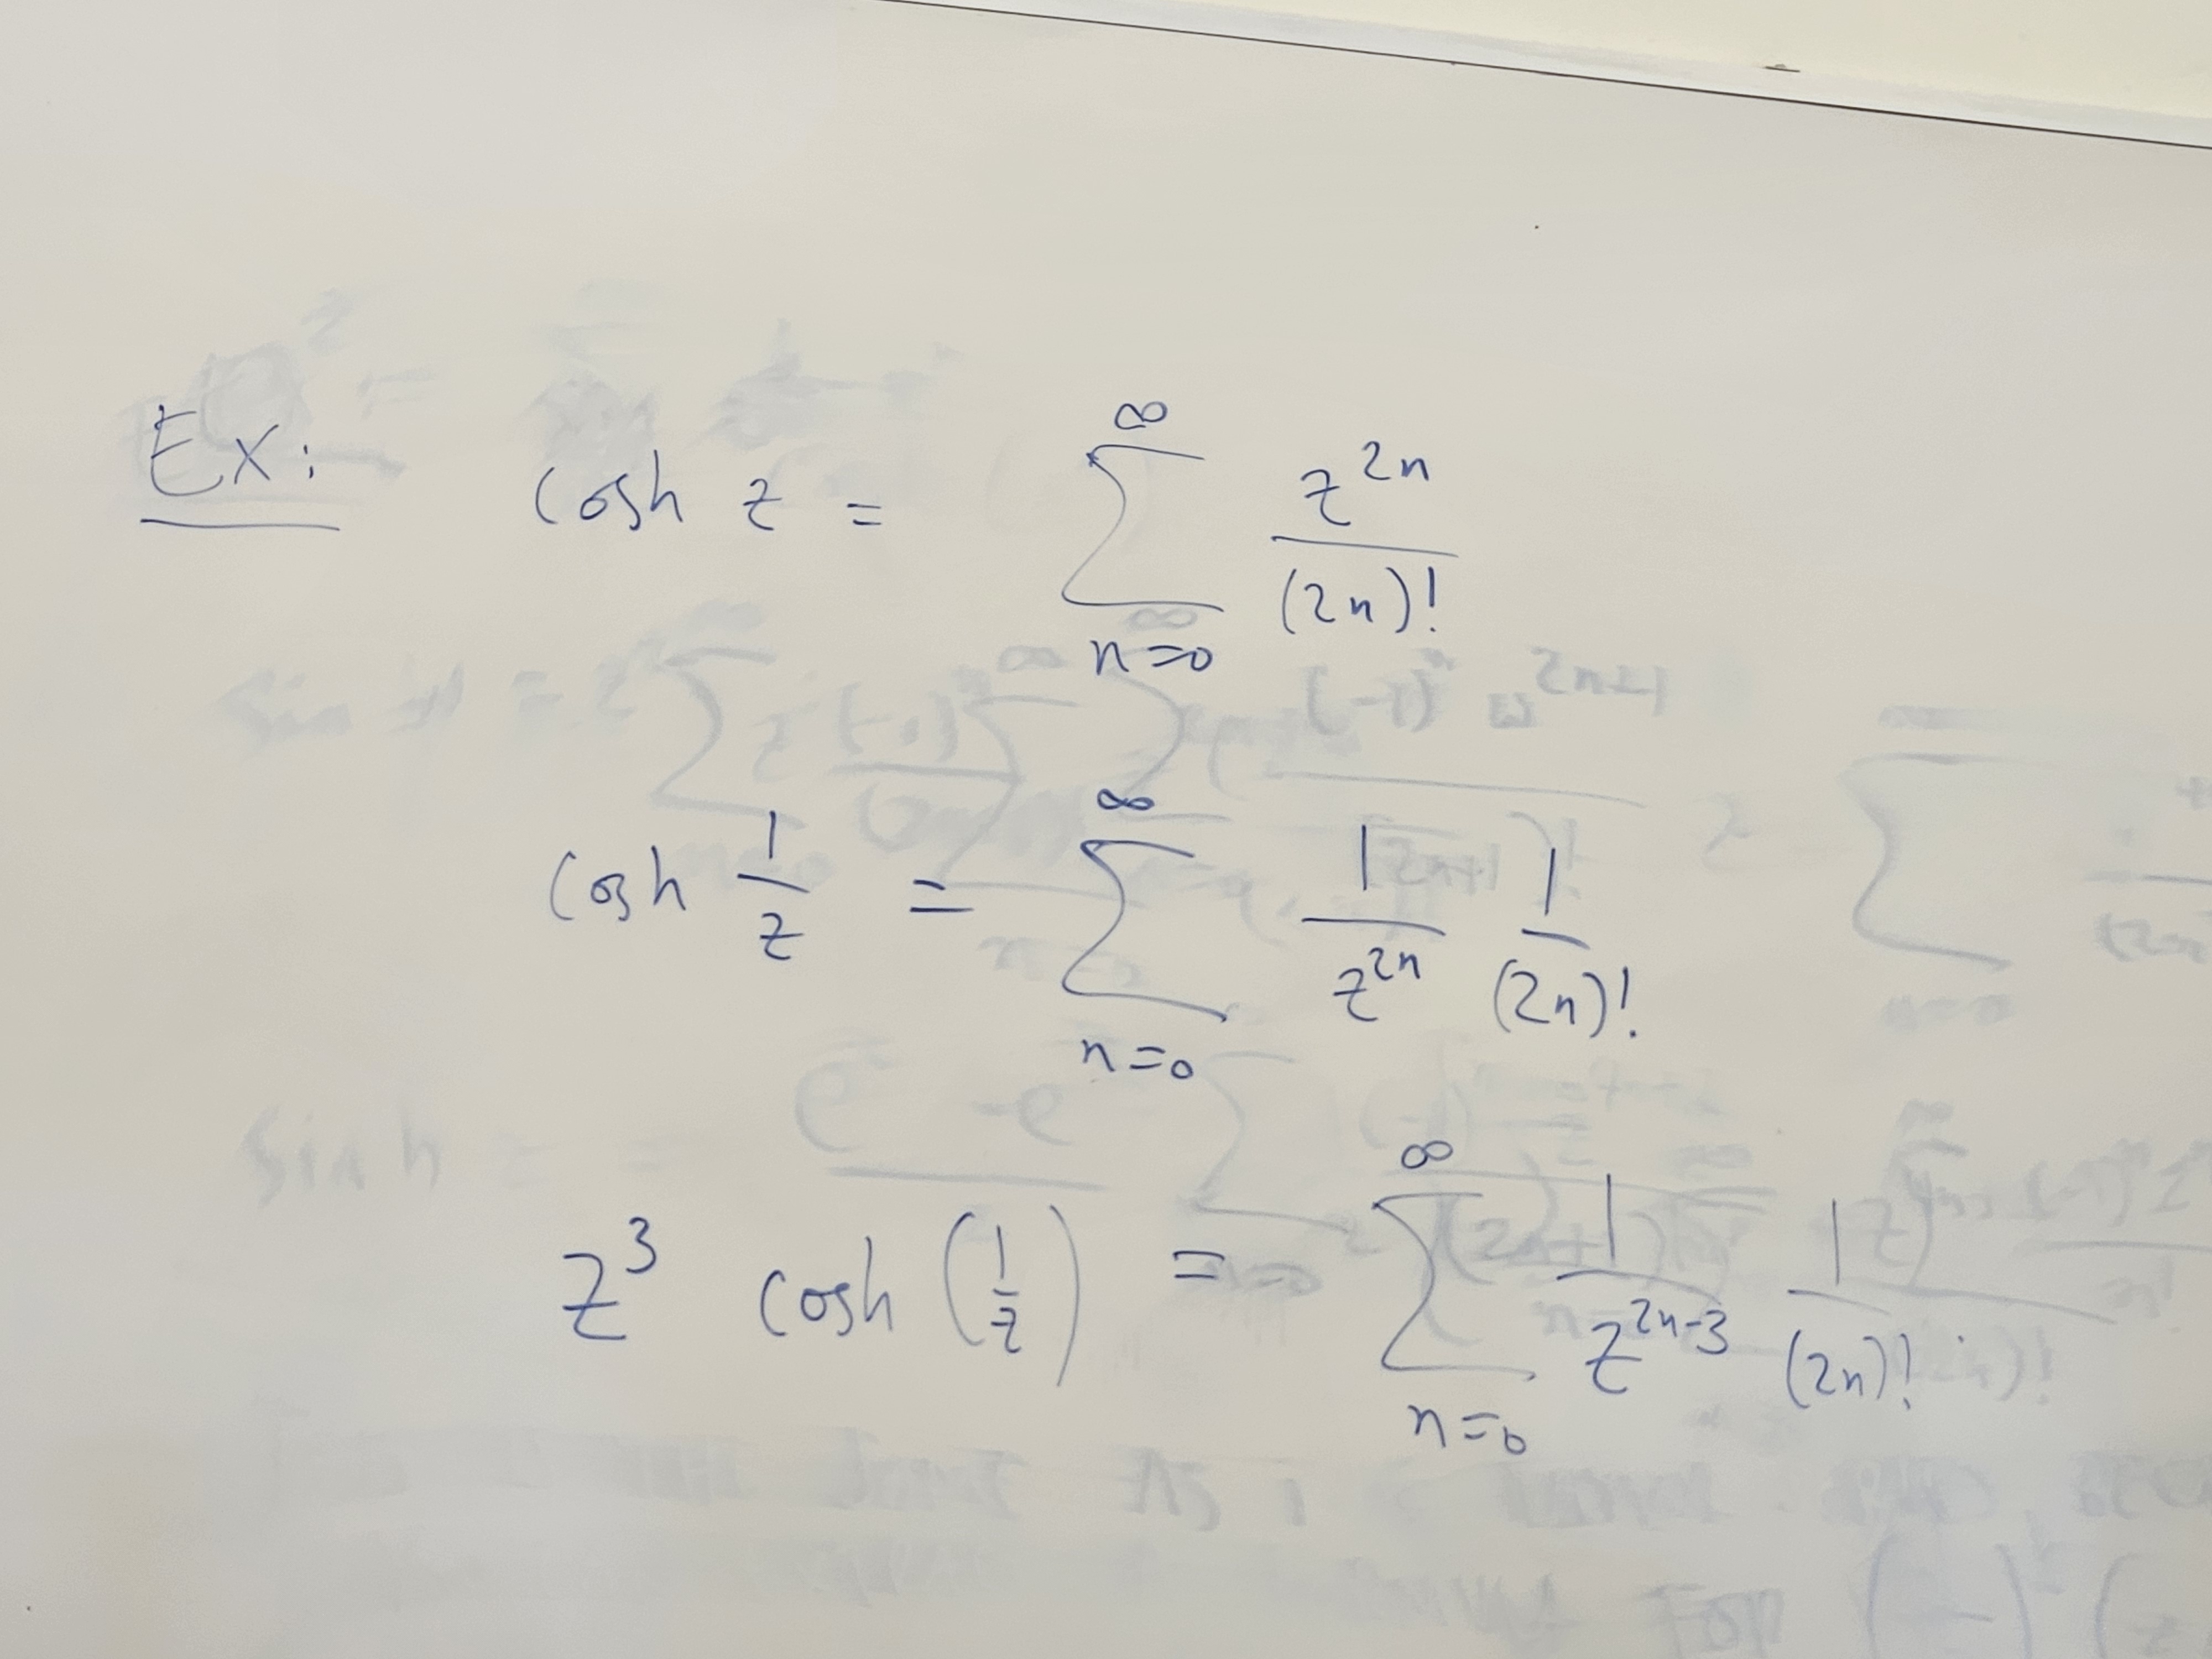 Ex: cosh z = ∑_{n=0}^{∞} z^{2n}/(2n)!
cosh 1/z = ∑_{n=0}^{∞} 1/z^{2n} 1/(2n)!
z^3 cosh (1/z) = ∑_{n=0}^{∞} 1/z^{2n-3} 1/(2n)!